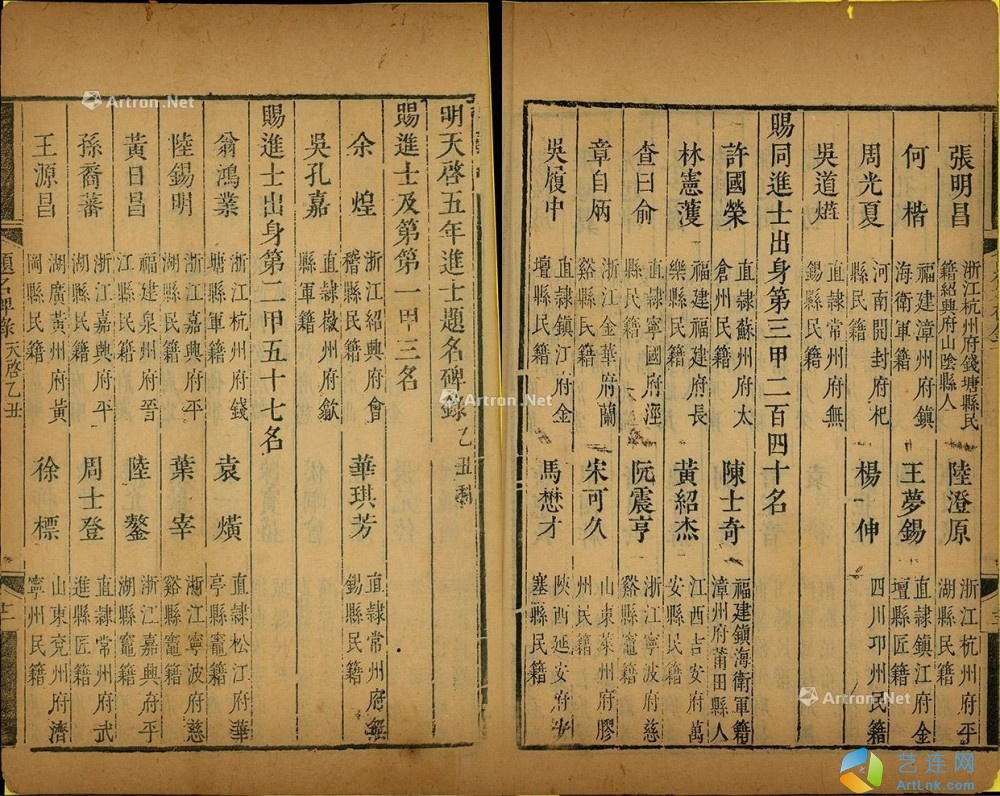 張明昌 浙江杭州府錢塘縣民籍紹興府山陰縣人 陸澄原 浙江杭州府平湖縣民籍
何楷 福建漳州府鎮海衛軍籍 王夢錫 直隸鎮江府金壇縣匠籍
周光夏 河南開封府杞縣民籍 楊伸 四川邛州民籍
吳道𤐣 直隸常州府無錫縣民籍
賜同進士出身第三甲二百四十名
許國榮 直隸蘇州府太倉州民籍 陳士奇 福建鎮海衛軍籍漳州府莆田縣人
林憲濩 福建福建府長樂縣民籍 黃紹杰 江西吉安府萬安縣民籍
查曰俞 直隸寧國府涇縣民籍 阮震亨 浙江寧波府慈谿縣竈籍
章自炳 浙江金華府蘭谿縣民籍 宋可久 山東萊州府膠州民籍
吳履中 直隸鎮江府金壇縣民籍 馬懋才 陝西延安府安塞縣民籍
明天啓五年進士題名碑錄 乙丑科
賜進士及第第一甲三名
余煌 浙江紹興府會稽縣民籍 華琪芳 直隸常州府無錫縣民籍
吳孔嘉 直隸徽州府歙縣軍籍
賜進士出身第二甲五十七名
翁鴻業 浙江杭州府錢塘縣軍籍 袁熿 直隸松江府華亭縣竈籍
陸錫明 浙江嘉興府平湖縣民籍 葉宰 浙江寧波府慈谿縣竈籍
黃日昌 福建泉州府晉江縣民籍 陸鏊 浙江嘉興府平湖縣竈籍
孫裔蕃 浙江嘉興府平湖縣民籍 周士登 直隸常州府武進縣匠籍
王源昌 湖廣黃州府黃岡縣民籍 徐標 山東兗州府濟寧州民籍
題名碑錄 天啓乙丑
Artron.Net
Artron.Net
Artron.Net
艺连网
ArtLnk.com